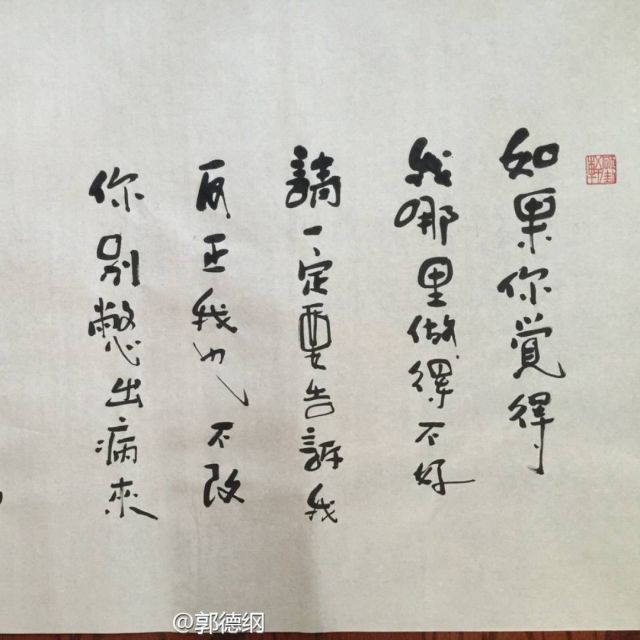 如果你覺得
我哪里做得不好
請一定要告訴我
反正我也不改
你别憋出病來
@郭德纲